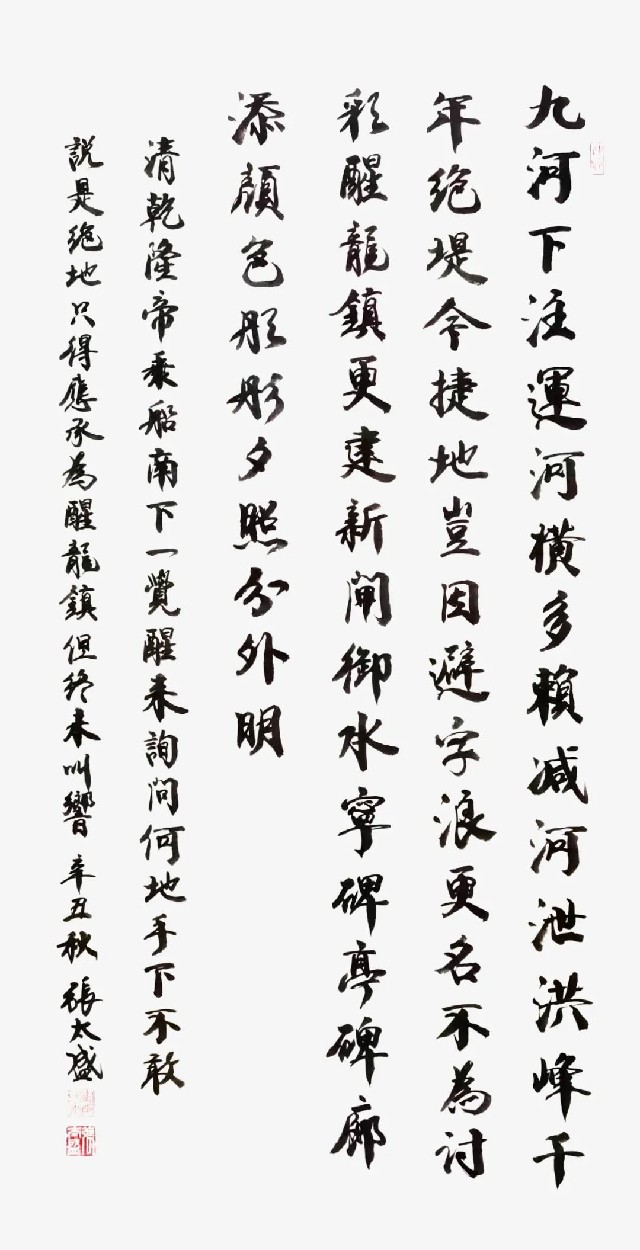 九河下注運河橫多賴減河泄洪峰千
年絶堤今捷地豈因避字浪更名不為討
彩醒龍鎮更建新閘御水寧碑亭碑廊
添顏色彤彤夕照分外明
清乾隆帝乘船南下一覺醒来詢問何地手下不敢
説是絶地只得應承為醒龍鎮但終未叫響 辛丑秋 張太盛